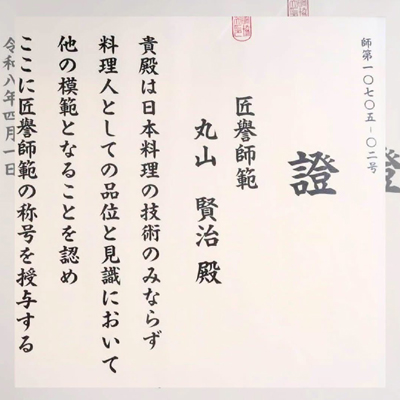 師第一〇七〇五-〇二号
證
匠譽師範
丸山 賢治 殿
貴殿は日本料理の技術のみならず
料理人としての品位と見識において
他の模範となることを認め
ここに匠譽師範の称号を授与する
令和八年四月一日
證